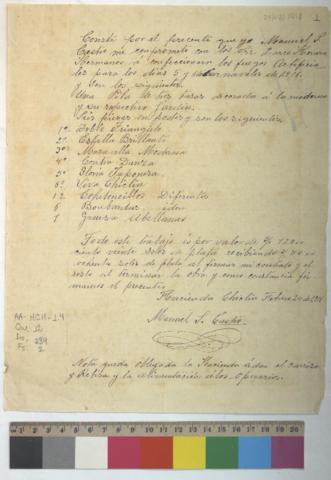 Consté por el presente que yo Manuel S.
Castro me comprometo con los Srs. Larco Herrera
Hermanos á confeccionar los fuegos Artificia
les para los dias 5 y de 1918.
y son los siguientes.
Una Pila de dos tazas decorado á la moderna
y su respectivo Jardin.
Seis piezas en postes y son los siguientes
1ª Doble Triangulo
2ª Estrella Brillante
3ª Maravilla Moderna
4ª Contra Danza
5ª Gloria Japonesa
6ª Viva Chiclin
12 Coheteecillos Diferentes
6 Bombardas idm
1 Gruesa Abellanas
Todo este trabajo es por valor de S/ 120..
ciento veinte soles de plata recibiendo S/ 80..
ochenta soles de plata al firmar mi contrato y el
resto al terminar la obra y como constancia fir
mamos el presente.
Hacienda Chiclin Febrero 20 de 1918
Manuel S. Castro
Nota queda obligada la Hacienda á dar el carrizo
y Retira y la alimentación á los Operarios.
AA-HCH-1.4
Ca. 12
Do. 289
Fs. 2
1
1 2 3 4 5 6 7 8 9 10 11 12 13 14 15 16 17 18 19 20